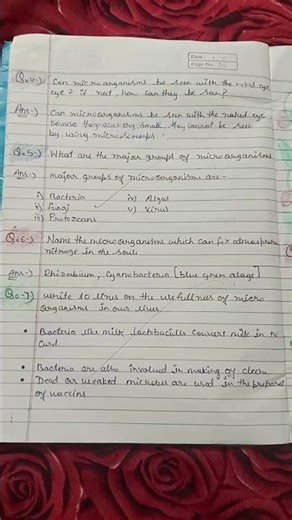 Date : / /
Page No.
Q.4-) Can microorganisms be seen with the naked eye
eye? If not, how can they be seen?
Ans-) Can microorganisms be seen with the naked eye
they are very small. they cannot be seen
by using microscopes.
Q.5-) What are the major groups of microorganisms
Ans-) major groups of microorganisms are -
i) Bacteria iv) Algal
ii) fungi v) Virus
iii) Protozoans
Q.6-) Name the microorganisms which can fix atmospheric
nitroge in the souls
Ans-) Rhizobium, Cyanobacteria [blue green alage]
Q.7-) write 10 lines on the usefullnes of micro
organisms in our lives.
• Bacteria like milk lactobacillus convert milk in to
Curd.
• Bacteria are also involved in making of
• Dead or weaked microbes are used in the
of vaccins.